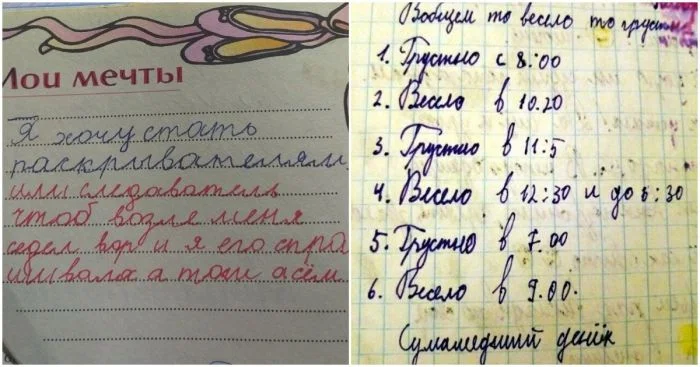 Мои мечты
Я хочу стать
раскрывателям
или следаватель
чтоб возле меня
седел вор и я его спра
шивала а том о сём
Вобщем то весело то грустно
1. Грустно с 8:00
2. Весело в 10.20
3. Грустно в 11:5
4. Весело в 12:30 и до 5:30
5. Грустно в 7.00
6. Весело в 9.00.
Сумашедний денёк